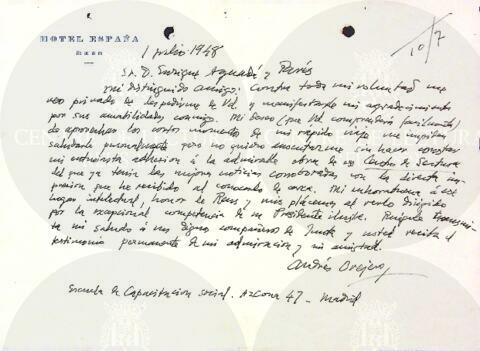 HOTEL ESPAÑA
REUS
1 julio 1948
10/7
Sr. D. Enrique Aguadé y Parés
mi distinguido amigo: Contra toda mi voluntad me
veo privado de despedirme de Vd. y manifestarle mi agradecimiento
por sus amabilidades conmigo. Mi deseo (que Vd comprenderá facilmente)
de aprovechar los cortos momentos de mi rápido viaje me impiden
saludarle personalmente pero no quiero ausentarme sin hacer constar
mi entusiasta adhesión a la admirable obra de ese Centro de Lectura
del que ya tenía las mejores noticias corroboradas con la directa im-
presión que he recibido al conocerlo de cerca. Mi enhorabuena a ese
hogar intelectual, honor de Reus y mis plácemes al verlo dirigido
por la excepcional competencia de su Presidente ilustre. Ruégole transmi-
ta mi saludo a sus dignos compañeros de Junta y usted reciba el
testimonio permanente de mi admiración y mi amistad.
Andrés Ovejero
Escuela de Capacitación social. Azcona 47. Madrid